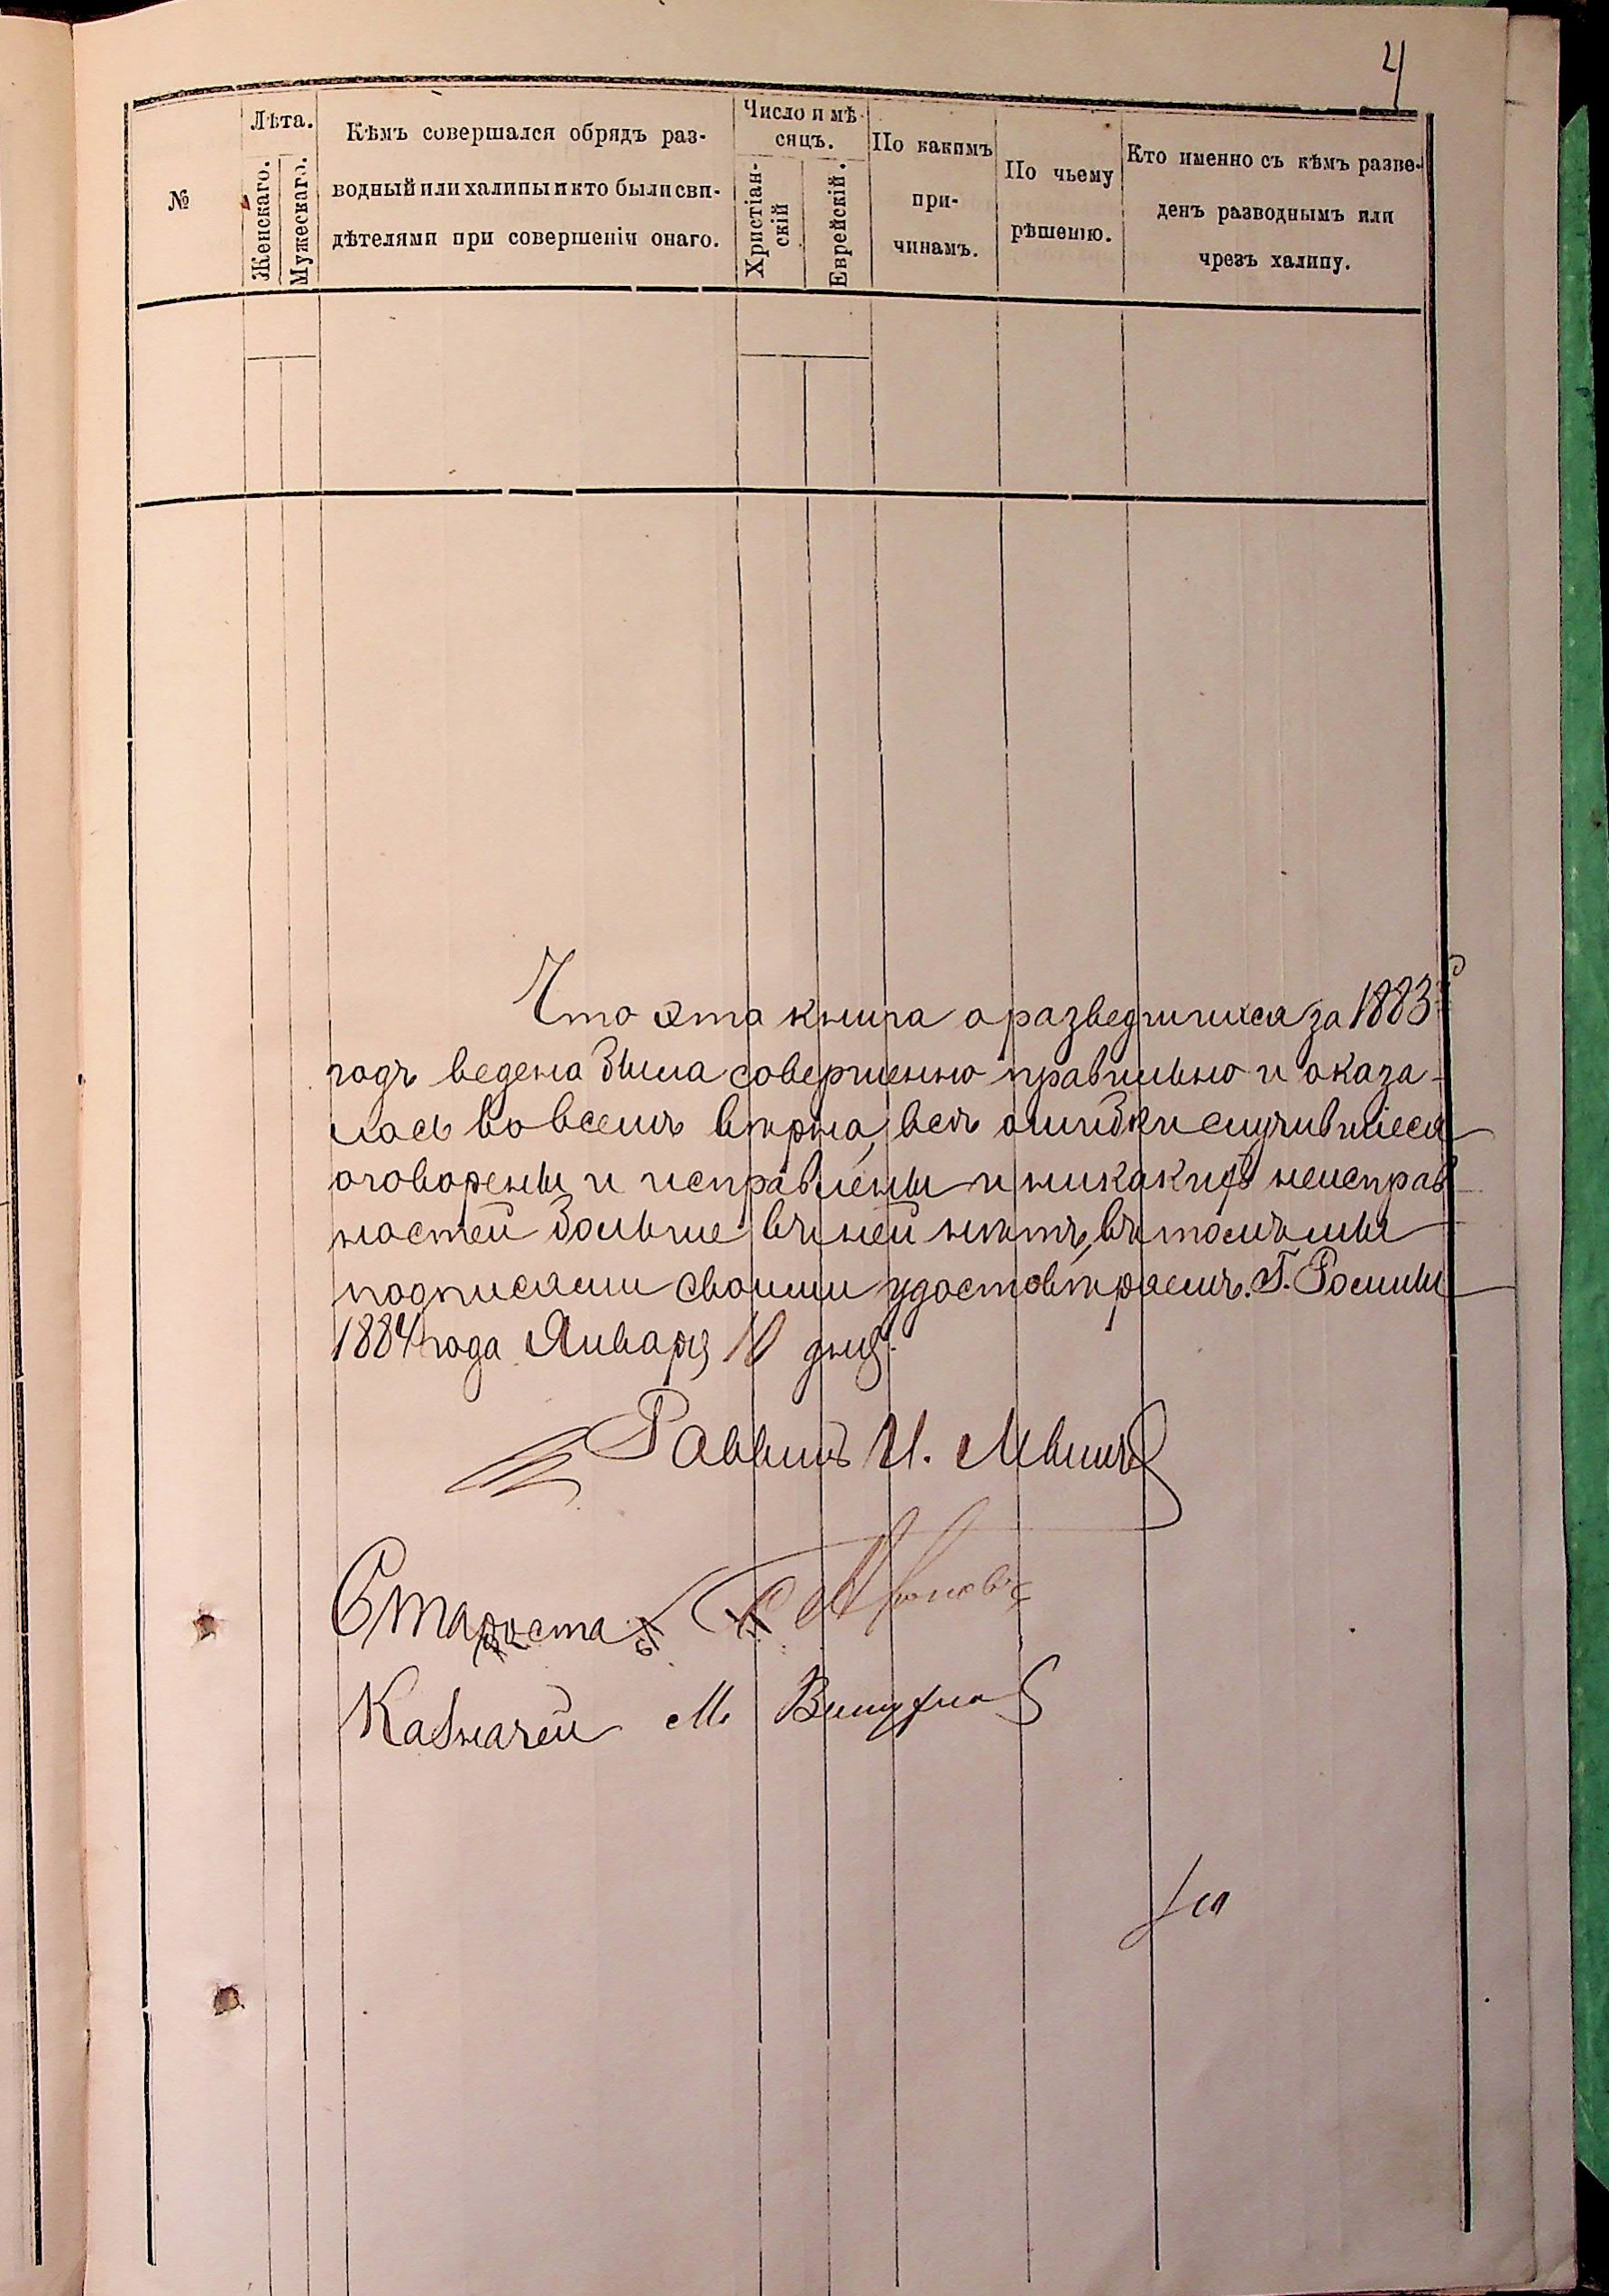 4
№
Лѣта.
Женскаго.
Мужескаго.
Кѣмъ совершался обрядъ раз-
водный или халипы и кто были сви-
дѣтелями при совершеніи онаго.
Число и мѣ-
сяцъ.
Христіан-
скій
Еврейскій.
По какимъ
при-
чинамъ.
По чьему
рѣшенію.
Кто именно съ кѣмъ разве-
денъ разводнымъ или
чрезъ халипу.
Что эта книга о разведшихся за 1883й
годъ ведена была совершенно правильно и оказа-
лась во всемъ вѣрна, всѣ ошибки случившіеся
оговорены и исправлены и никакихъ неисправ
ностей больше въ ней нѣтъ, въ томъ мы
подписями своими удостовѣряемъ. Г. Ромны
1884 года Января 10 дня.
Раввинъ И. Левинъ
Староста
Казначей М.